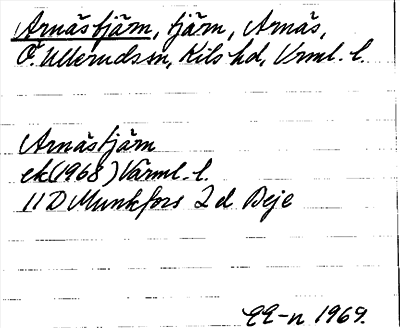 Arnästjärn, tjärn, Arnäs,
Ö. Ulleruds sn, Kils hd, Vrml. l.
Arnästjärn
ek (1968) Värml. l.
11 D Munkfors 2 d Deje
1969.